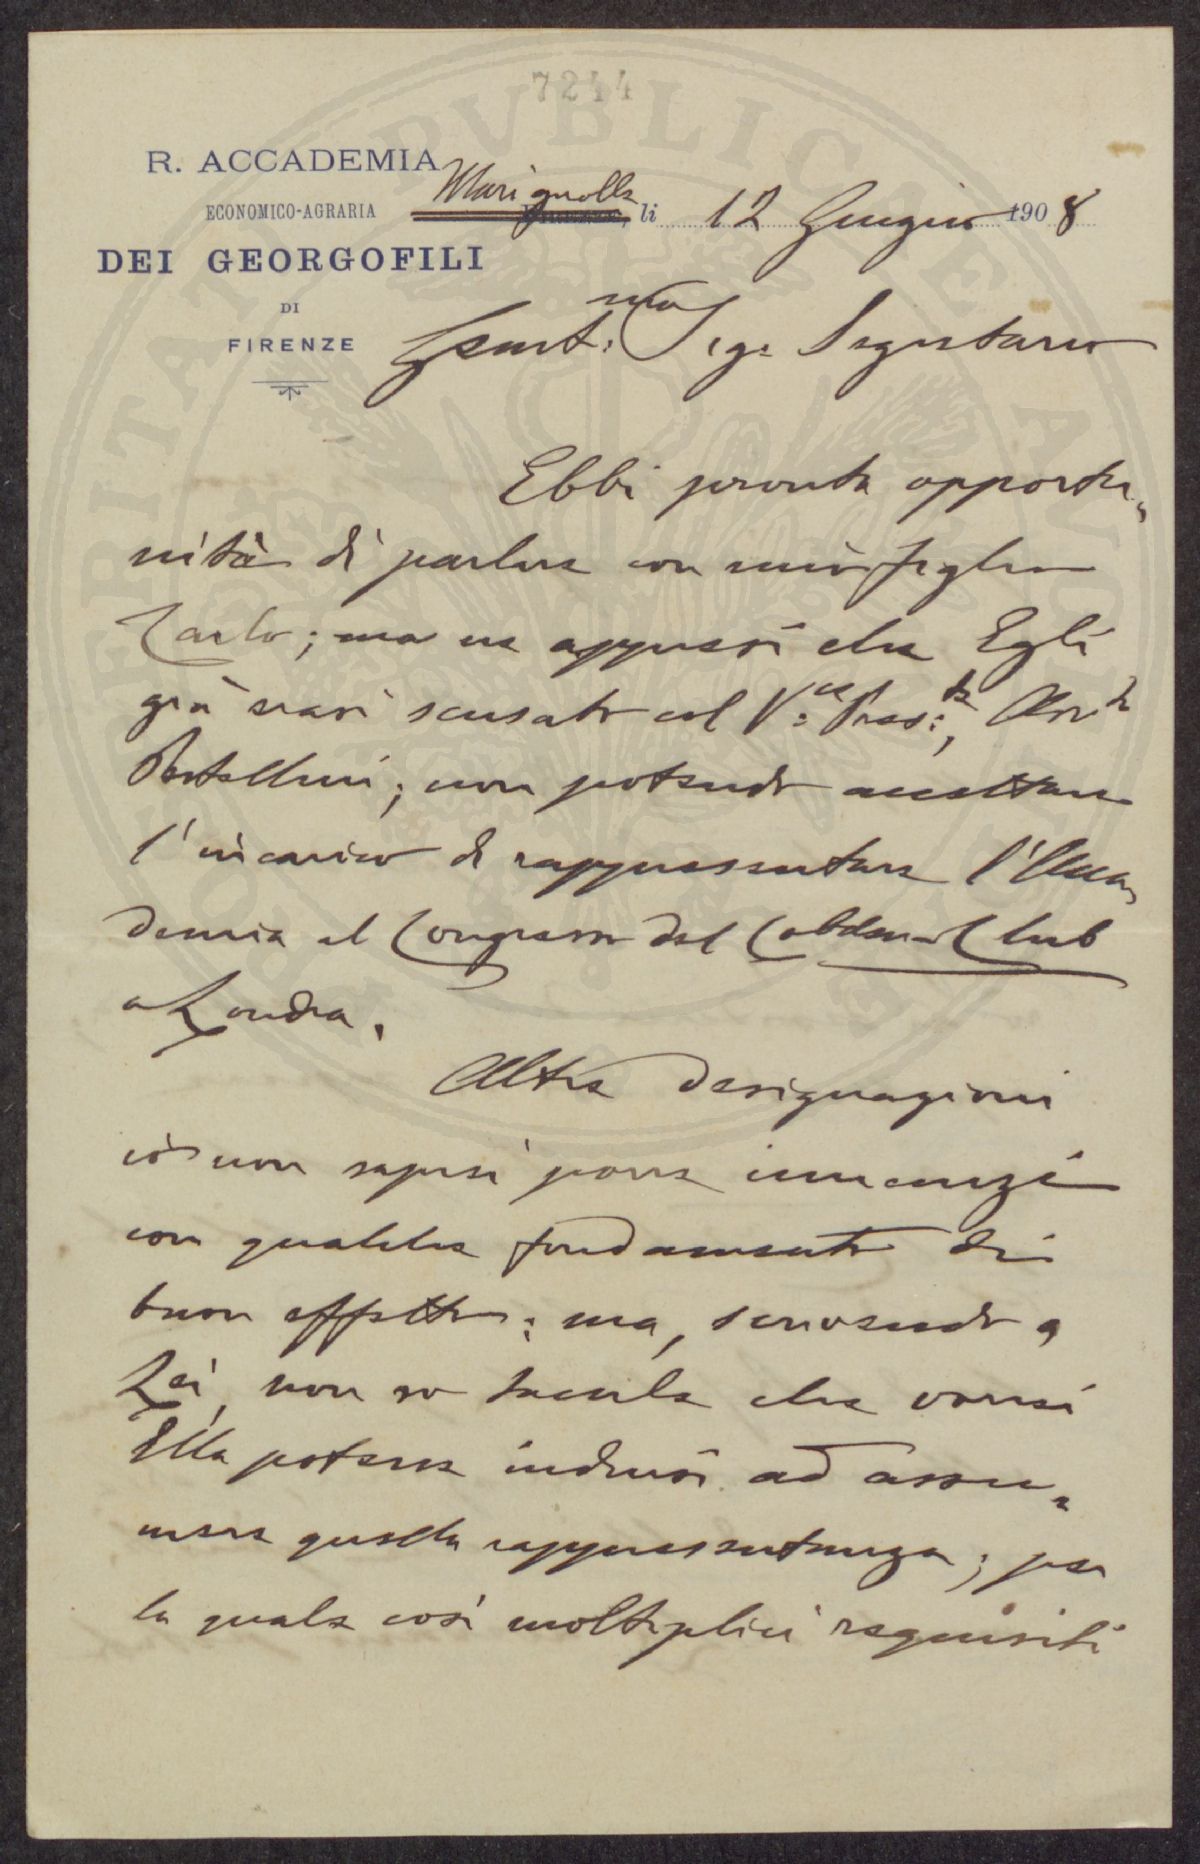 7244
R. ACCADEMIA
ECONOMICO-AGRARIA
DEI GEORGOFILI
DI
FIRENZE
Marignolle
Firenze, li 12 Giugno 1908
Gent:mo Sig: Segretario
Ebbi pronta opportu„
nità di parlare con mio figlio
Carlo; ma ne appresi che Egli
già erasi scusato col V:ce Pres:te,
; non potendo accettare
l'incarico di rappresentare l'Acca„
demia al Congresso del Cobden-Club
a Londra.
Altre designazioni
io non saprei porre innanzi
con qualche fondamento di
buon effetto; ma, scrivendo a
Lei, non so tacerle che vorrei
Ella potesse indursi ad assu„
mere quella rappresentanza; per
la quale così molteplici requisiti
PVBLICAE